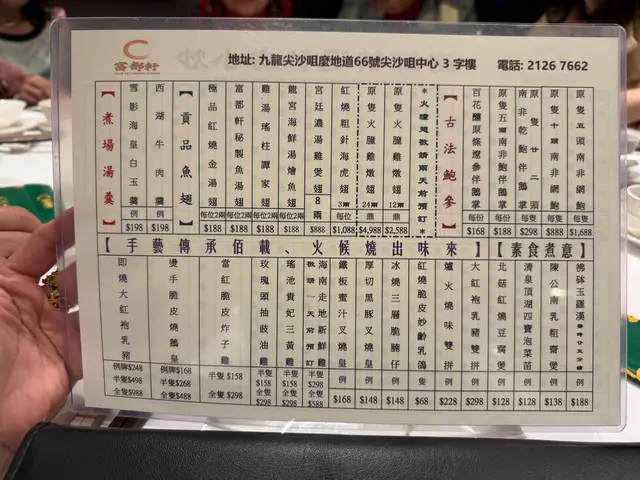 富都軒
地址: 九龍尖沙咀麼地道66號尖沙咀中心 3 字樓
電話: 2126 7662
【古法鮑參】
原隻五頭南非網鮑 每隻 $1,688
原隻十頭南非網鮑 每隻 $888
原隻廿二頭南非乾鮑伴鵝掌 每隻 $298
原隻五頭南非鮑伴鵝掌 每份 $288
百花釀原條遼參伴鵝掌 每份 $168
【貢品魚翅】
*火瞳翅敬請兩天前預訂*
原隻火瞳雞燉翅 12兩 鼎 $2,588
原隻火瞳雞燉翅 24兩 鼎 $4,988
紅燒粗針海虎翅 3兩 每位 $1,088
宮廷濃湯雞煲翅 8兩 $888
龍宮海鮮湯燴魚翅 每位2兩 $188
雞湯瑤柱譚家翅 每位2兩 $188
富都軒秘製魚湯翅 每位2兩 $188
極品紅燒金湯翅 每位2兩 $188
【煮場湯羹】
西湖牛肉羹 例 $198
雪影海皇白玉羹 例 $198
【素食煮意】
佛砵玉羅漢 例 $188
陳公南乳粗齋煲 例 $138
清泉頂湖四寶泡菜苗 例 $128
北菇紅燒豆腐煲 例 $128
【手藝傳承佰載、火候燒出味來】
大紅袍乳豬雙拼 例 $298
爐火燒味雙拼 例 $228
紅燒脆皮妙齡乳鴿 隻 $68
冰燒三層脆腩仔 例 $148
厚切黑豚叉燒皇 例 $148
鐵板蜜汁叉燒皇 例 $168
海南走地新鮮雞 敬請一天前預訂 半隻$298 全隻$588
瑤池貴妃三黃雞 半隻$158 全隻$298
玫瑰頭抽豉油雞 半隻$158 全隻$298
當紅脆皮炸子雞 半隻 $158 全隻 $298
燙手脆皮燒鵝皇 例牌$168 半隻$288 全隻$488
即燒大紅袍乳豬 例牌$248 半隻$498 全隻$988